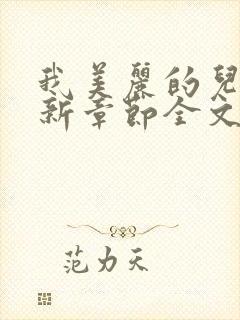 我美麗的兒
新章節全文
范力天